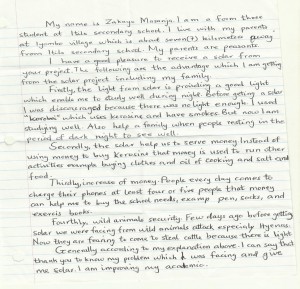 My name is Zakayo Masanja. I am a form three
student at Itilo secondary school. I live with my parents
at Iyombo village which is about seven(7) kilometers away
from Itilo secondary school. My parents are peasants.
I have a good pleasure to receive a solar from
your project. The following are the advantage which I am getting
from the solar project including my family
Firstly, the light from solar is providing a good light
which enable me to study well during night. Before getting a solar
I was discouraged because there was no light enough. I used
"koroboi" which uses kerosine and have smokes. But now I am
studying well. Also help a family when people resting in the
period of dark night to see well.
Secondly, the solar help us to serve money. Instead of
using money to buy kerosine that money is used to run other
activities example buying clothes and oil of cooking and salt and
food.
Thirdly, increase of money. People every day comes to
charge their phones at least four or five people that money
can help me to buy the school needs, examp pen, socks, and
exercis books.
Fourthly, wild animals security. Few days ago before getting
solar we were facing from wild animals attack especialy Hyenas.
Now they are fearing to come to steal cattle because there is light
Generally according to my explanation above. I can say that
thank you to know my problem which I was facing and give
me solar. I am improving my academic.